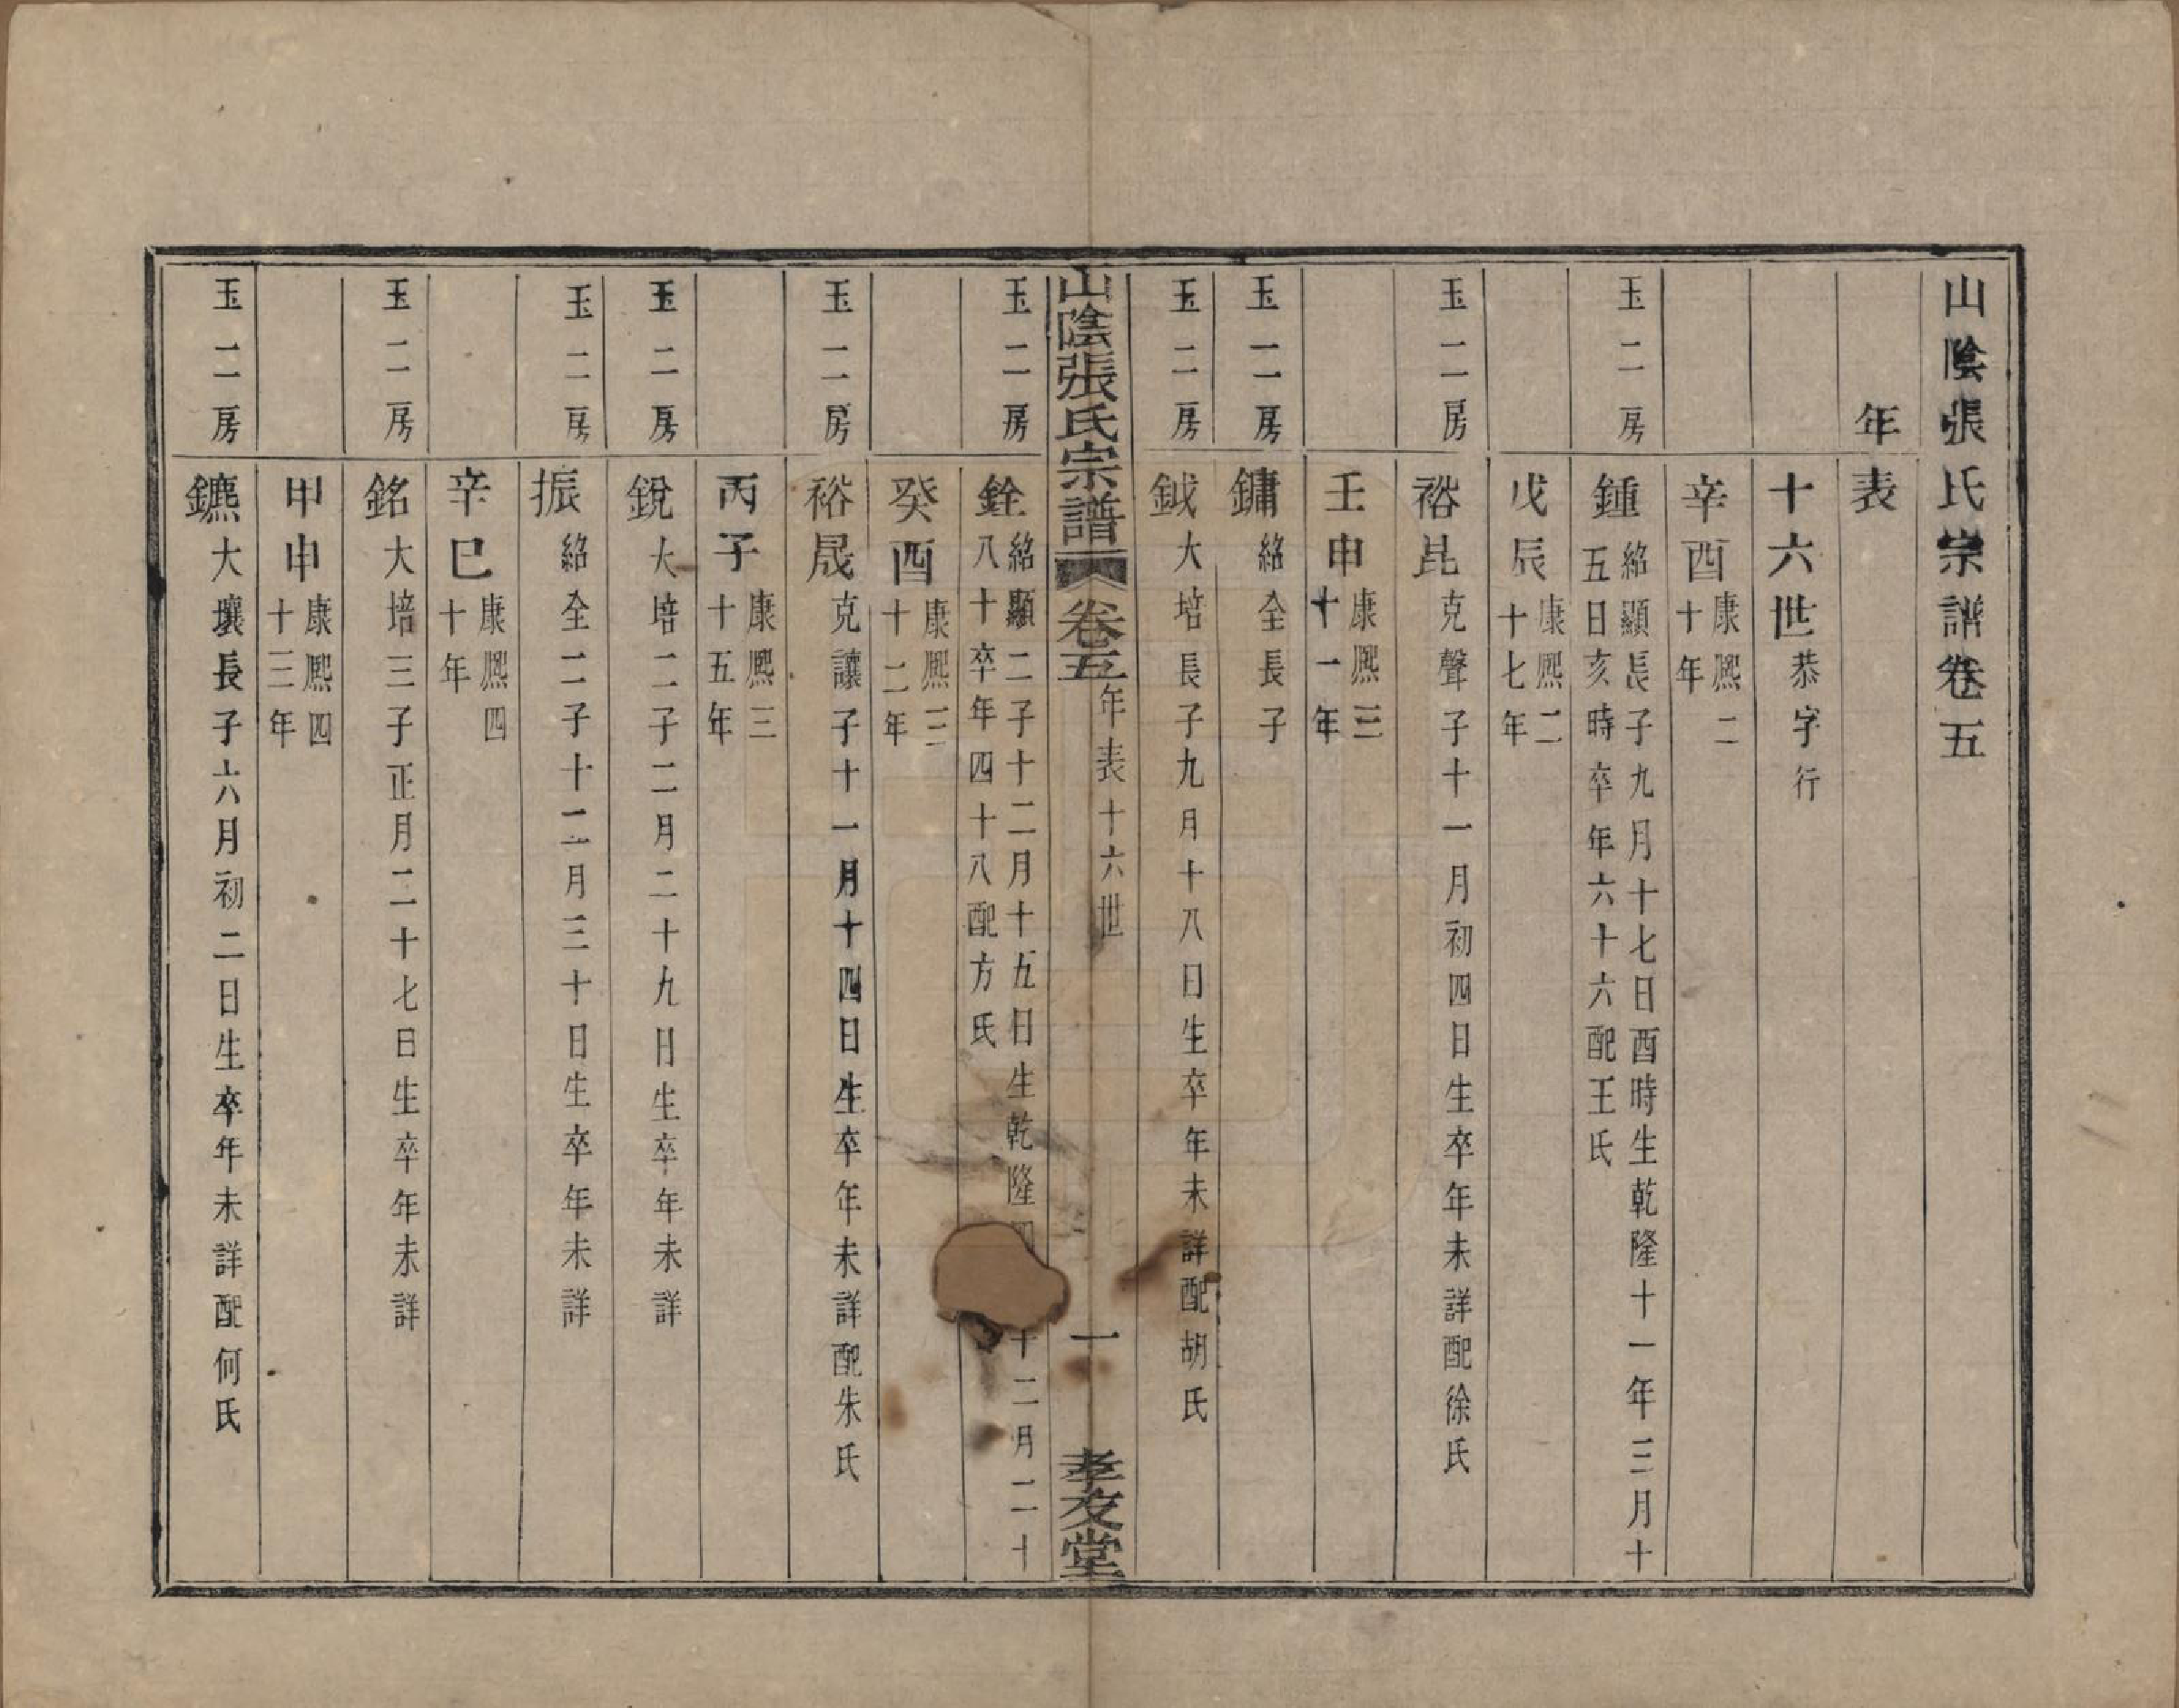 山陰張氏宗譜卷五
年表
十六世恭字行
辛酉康熙二十年
玉二房
鍾紹顯長子九月十七日酉時生乾隆十一年三月十
五日亥時卒年六十六配王氏
戊辰康熙二十七年
玉二房
裕昆克聲子十一月初四日生卒年未詳配徐氏
壬申康熙三十一年
玉二房
鏞紹全長子
玉二房
鉞大培長子九月十八日生卒年未詳配胡氏
山陰張氏宗譜 卷五 年表十六世 一 孝友堂
玉二房
銓紹顯二子十二月十五日生乾隆十二月二十
八十卒年四十八配方氏
癸酉康熙三十二年
玉二房
裕晟克讓子十一月十四日生卒年未詳配朱氏
丙子康熙三十五年
玉二房
銳大培二子二月二十九日生卒年未詳
玉二房
振紹全二子十二月三十日生卒年未詳
辛巳康熙四十年
玉二房
銘大培三子正月二十七日生卒年未詳
甲申康熙四十三年
玉二房
鑣大壤長子六月初二日生卒年未詳配何氏